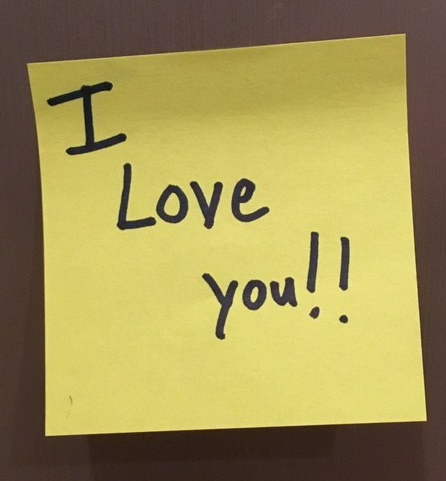 I
Love
you!!